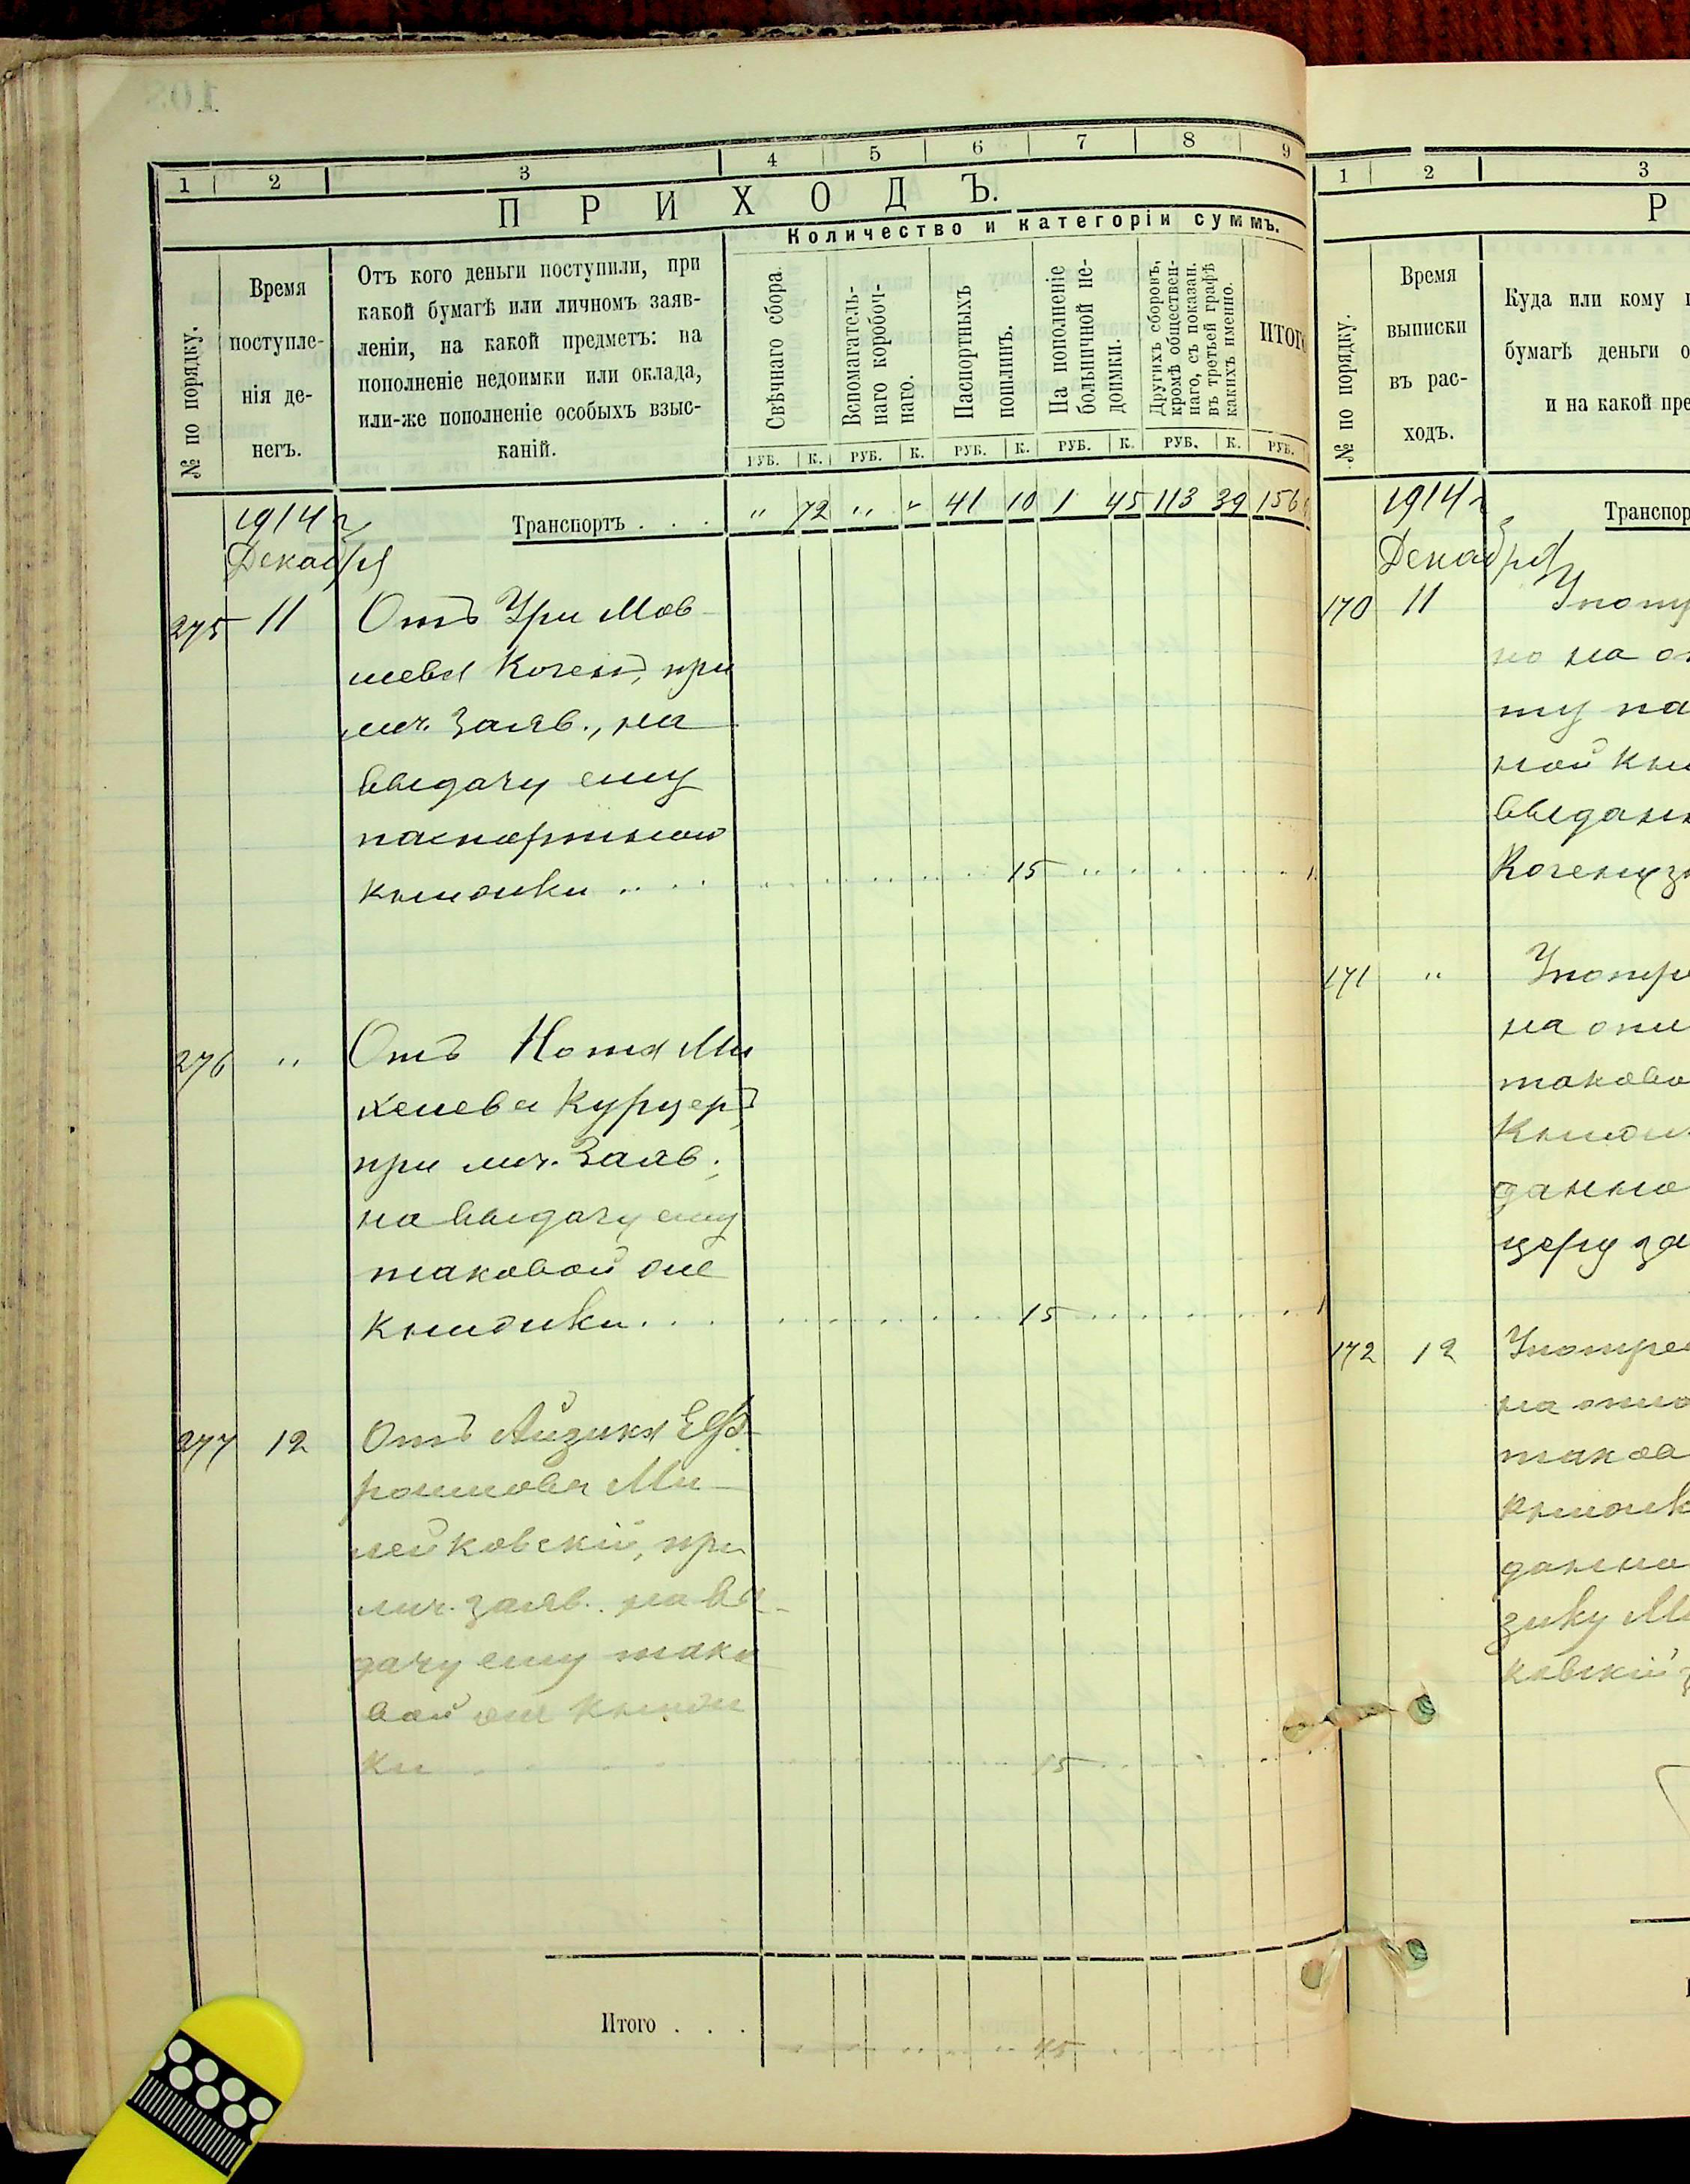 1 2 3 4 5 6 7 8 9
ПРИХОДЪ.
Количество и категоріи суммъ.
№ по порядку.
Время
поступле-
нія де-
негъ.
Отъ кого деньги поступили, при
какой бумагѣ или личномъ заяв-
леніи, на какой предметъ: на
пополненіе недоимки или оклада,
или-же пополненіе особыхъ взыс-
каній.
Свѣчнаго сбора.
Вспомагатель-
наго коробоч-
наго.
Паспортныхъ
пошлинъ.
На пополненіе
больничной не-
доимки.
Другихъ сборовъ,
кромѣ обществен-
наго, съ показан.
въ третьей графѣ
какихъ именно.
ИТОГО
РУБ. К. РУБ. К. РУБ. К. РУБ. К. РУБ. К. РУБ.
1914 г.
Транспортъ . . . " 72 " " 41 10 1 45 113 39 156
Декабря
275 11 Отъ Ури Мов-
шева Коченъ, при
лич. заяв., на
выдачу ему
паспортной
книжки 15
276 " Отъ Нотя Ми
хелева Курцеръ,
при лич. Заяв.,
на выдачу ему
таковой же
книжки 15
277 12 Отъ Айзика Еф-
роимова Ми-
лейковскій, при
лич. заяв. на вы-
дачу ему тако
вой же книж
ки 15
Итого . . . 45
1 2 3
Р
№ по порядку.
Время
выписки
въ рас-
ходъ.
Куда или кому
бумагѣ деньги
и на какой
1914 г.
Декабря
170 11
но на
ту
ной
Кочену
171 "
на
172 12
зику